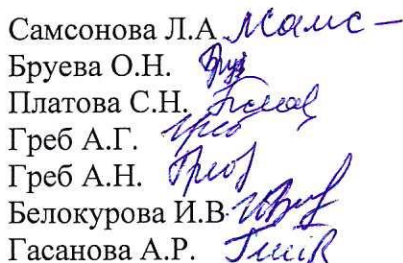 Самсонова Л.А
Бруева О.Н.
Платова С.Н.
Греб А.Г.
Греб А.Н.
Белокурова И.В
Гасанова А.Р.